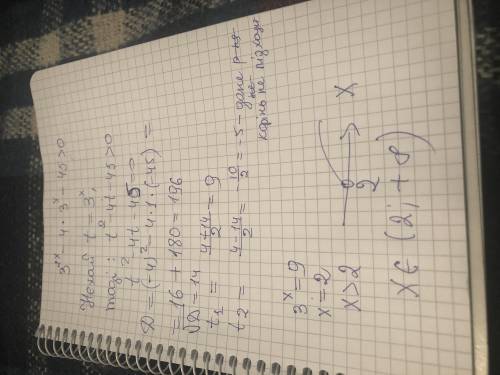 3²ˣ - 4 · 3ˣ - 45 > 0
Нехай t = 3ˣ,
тоді: t² - 4t - 45 > 0
t² - 4t - 45 = 0
D = (-4)² - 4 · 1 · (-45) =
= 16 + 180 = 196
√D = 14
t₁ = (4+14)/2 = 9
t₂ = (4-14)/2 = -10/2 = -5 - дане р-ня
не
корінь не підходи
3ˣ = 9
x = 2
x > 2
2
x
x ∈ (2; +8)